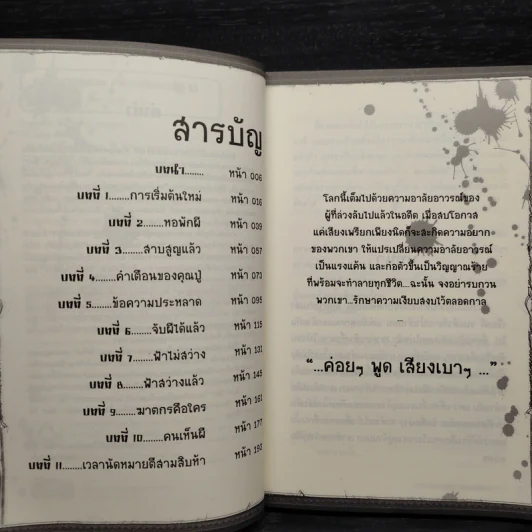 สารบัญ
บทนำ........ หน้า 006
บทที่ 1........การเริ่มต้นใหม่ หน้า 016
บทที่ 2........หอพักผี หน้า 039
บทที่ 3........สาบสูญแล้ว หน้า 057
บทที่ 4........คำเตือนของคุณปู่ หน้า 073
บทที่ 5........ข้อความประหลาด หน้า 095
บทที่ 6........จับผีได้แล้ว หน้า 115
บทที่ 7........ฟ้าไม่สว่าง หน้า 131
บทที่ 8........ฟ้าสว่างแล้ว หน้า 145
บทที่ 9........ฆาตกรคือใคร หน้า 161
บทที่ 10........คนเห็นผี หน้า 177
บทที่ 11........เวลานัดหมายตีสามสิบห้า หน้า 193
โลกนี้เต็มไปด้วยความอาลัยอาวรณ์ของ
ผู้ที่ล่วงลับไปแล้วในอดีต เมื่อสบโอกาส
แค่เสียงเพรียกเพียงนิดก็จะสะกิดความอยาก
ของพวกเขา ให้แปรเปลี่ยนความอาลัยอาวรณ์
เป็นแรงแค้น และก่อตัวขึ้นเป็นวิญญาณร้าย
ที่พร้อมจะทำลายทุกชีวิต...ฉะนั้น จงอย่ารบกวน
พวกเขา...รักษาความเงียบสงบไว้ตลอดกาล
...
“...ค่อยๆ พูด เสียงเบาๆ ...”